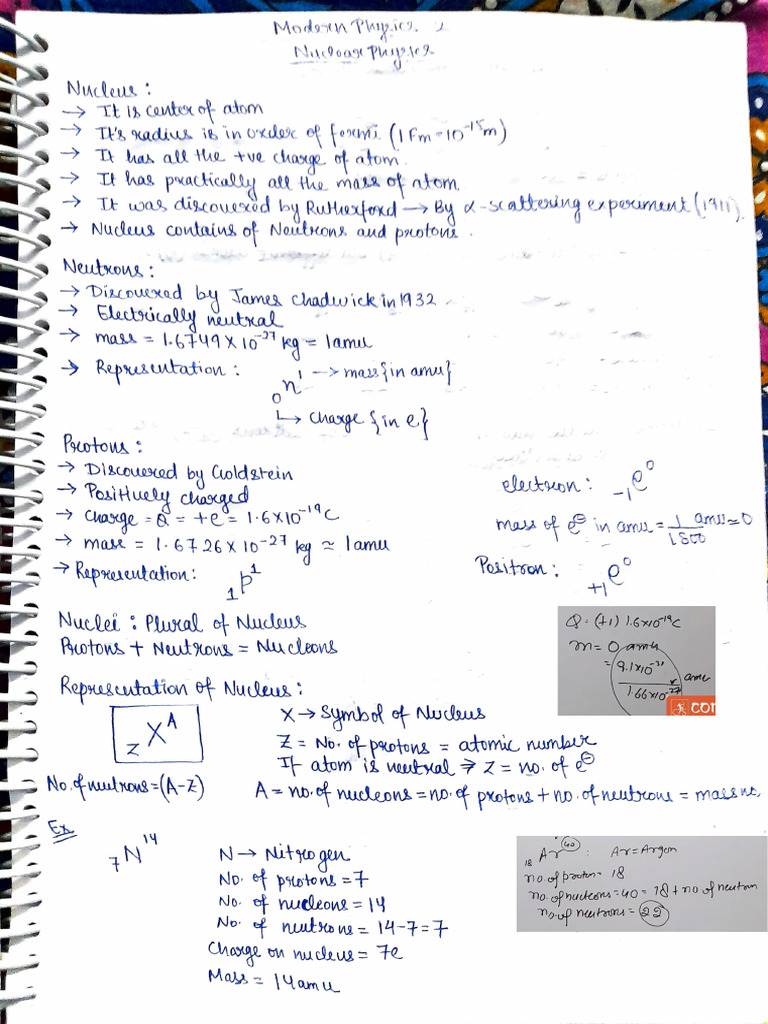 Modern Physics 2
Nuclear Physics
Nucleus :
→ It is center of atom
→ It's radius is in order of fermi (1 Fm = 10⁻¹⁵m)
→ It has all the +ve charge of atom.
→ It has practically all the mass of atom
→ It was discovered by Rutherford → By α-scattering experiment (1911).
→ Nucleus contains of Neutrons and protons.
Neutrons :
→ Discovered by James Chadwick in 1932
→ Electrically neutral
→ mass = 1.6749 × 10⁻²⁷ kg = 1amu
→ Representation : ₀n¹ --> mass {in amu}
↳ charge {in e}
Protons :
→ Discovered by Goldstein
→ Positively charged
→ charge = Q = +e = 1.6×10⁻¹⁹C
→ mass = 1.6726 × 10⁻²⁷ kg ≃ 1amu
→ Representation: ₁p¹
electron : ₋₁e⁰
mass of e⊖ in amu = 1/1800 amu ≃ 0
Positron : ₊₁e⁰
Nuclei : Plural of Nucleus
Protons + Neutrons = Nucleons
Q = (+1) 1.6×10⁻¹⁹C
m = 0 amu
= 9.1×10⁻³¹ / 1.66×10⁻²⁷ amu
Representation of Nucleus :
zXᴬ
X → Symbol of Nucleus
Z = No. of protons = atomic number
If atom is neutral ⇒ Z = no. of e⊖
No. of neutrons = (A-Z)
A = no. of nucleons = no. of protons + no. of neutrons = mass no.
Ex
₇N¹⁴
N → Nitrogen
No. of protons = 7
No. of nucleons = 14
No. of neutrons = 14-7 = 7
Charge on nucleus = 7e
Mass = 14amu
₁₈Ar⁴⁰ : Ar = Argon
no. of proton = 18
no. of nucleons = 40 = 18 + no of neutron
no. of neutrons = 22